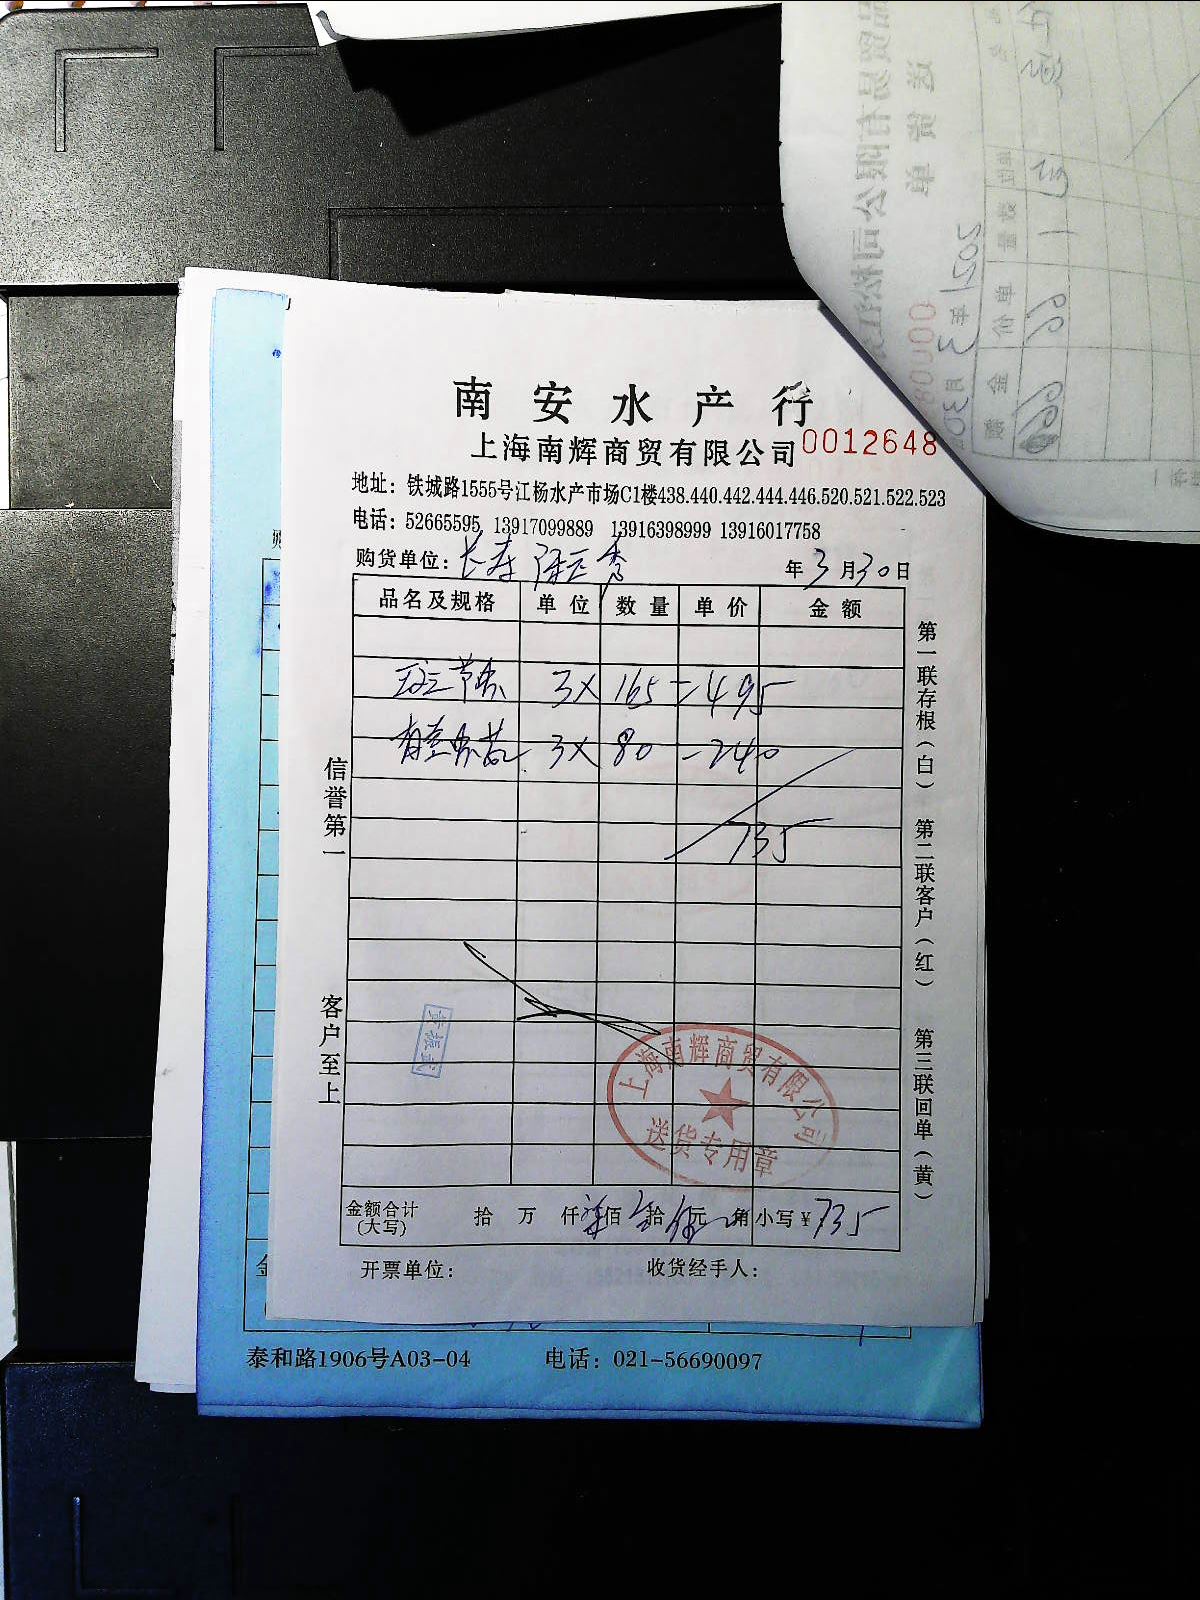 南安水产行
上海南辉商贸有限公司 0012648
地址：铁城路1555号江杨水产市场C1楼438.440.442.444.446.520.521.522.523
电话：52665595 13917099889 13916398999 13916017758
购货单位：长寿 年3月30日
品名及规格 单位 数量 单价 金额
斑节 3× 165=495
3× 80=240
735
信誉第一
客户至上
第一联存根（白） 第二联客户（红） 第三联回单（黄）
黄振武
上海南辉商贸有限公司
送货专用章
金额合计（大写） 拾 万 仟 柒佰 叁拾 伍元 角 小写￥735
开票单位： 收货经手人：
泰和路1906号A03-04 电话：021-56690097
送货单
2021年3月30